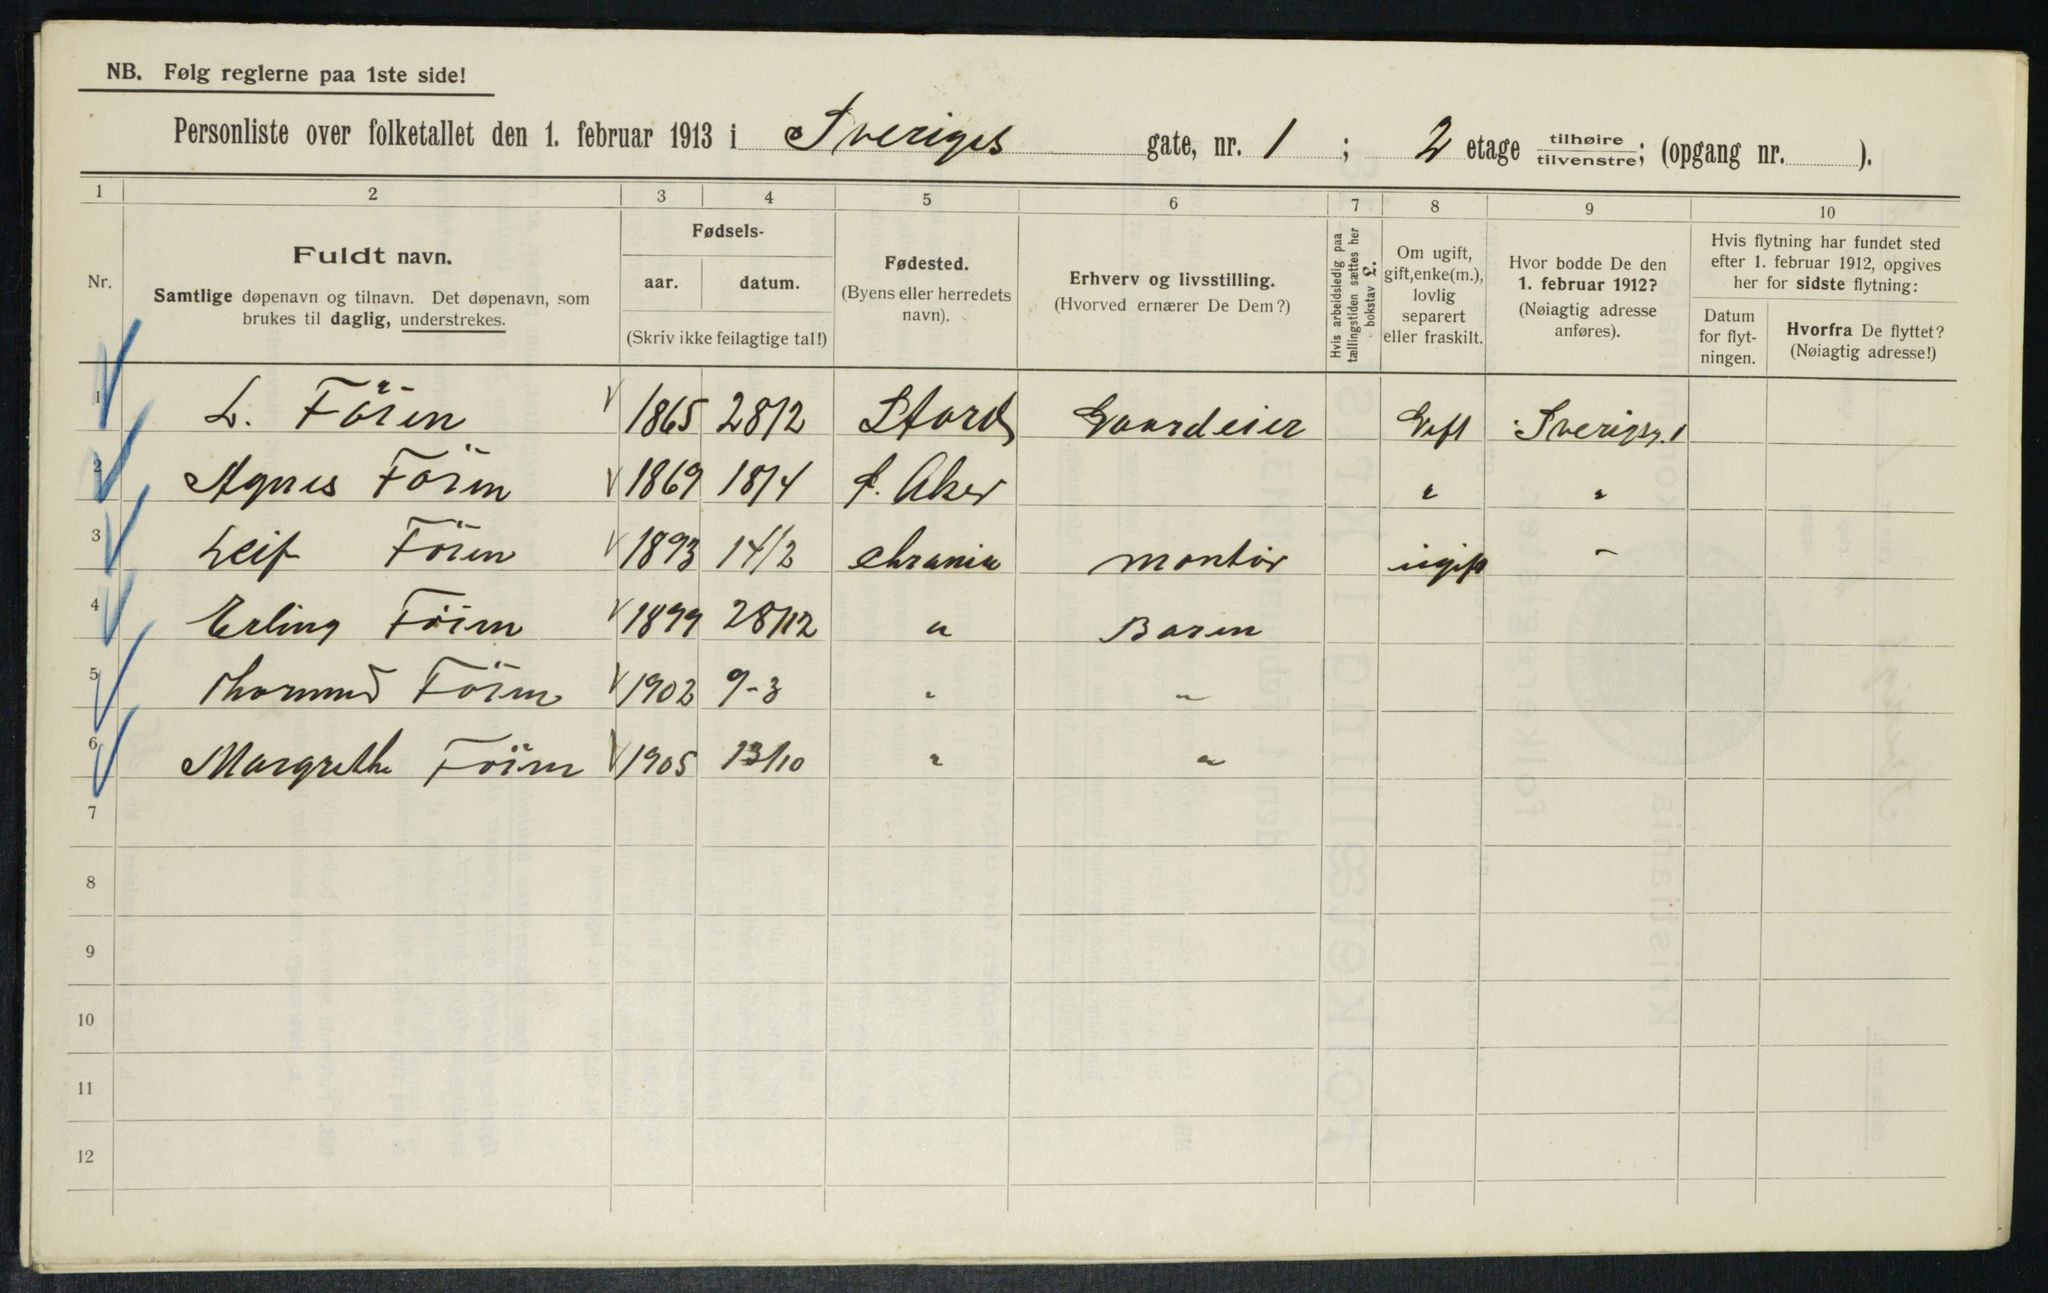 NB. Følg reglerne paa 1ste side!
Personliste over folketallet den 1. februar 1913 i Sveriges gate, nr. 1; 2 etage tilhøire/tilvenstre; (opgang nr. ).
1 2 3 4 5 6 7 8 9 10
Nr.
Fuldt navn.
Samtlige døpenavn og tilnavn. Det døpenavn, som
brukes til daglig, understrekes.
Fødsels-
aar. datum.
(Skriv ikke feilagtige tal!)
Fødested.
(Byens eller herredets
navn).
Erhverv og livsstilling.
(Hvorved ernærer De Dem?)
Hvis arbeidsledig paa
tællingstiden sættes her
bokstav £.
Om ugift,
gift, enke(m.),
lovlig
separert
eller fraskilt.
Hvor bodde De den
1. februar 1912?
(Nøiagtig adresse
anføres).
Hvis flytning har fundet sted
efter 1. februar 1912, opgives
her for sidste flytning:
Datum
for flyt-
ningen.
Hvorfra De flyttet?
(Nøiagtig adresse!)
1 L. Föien 1865 28/2 Stord Gaardeier Gift Sverigsg. 1
2 Agnes Föien 1869 18/4 Aker " "
3 Leif Föien 1893 14/2 Chrania montör ugift "
4 Erling Föien 1899 28/12 " Baren
5 Thormod Föien 1902 9-3 " "
6 Margrethe Föien 1905 13/10 " "
7
8
9
10
11
12